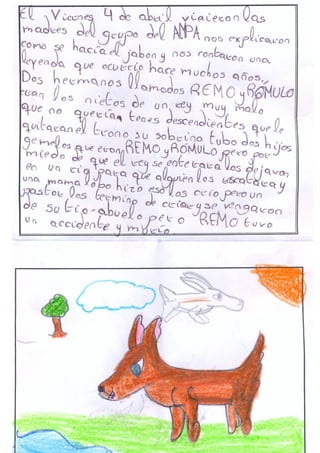 El Viernes 4 de abril vinieron las
madres del grupo del AMPA nos explicaron
como se hacia el jabon y nos contaron una
leyenda que ocurrio hace muchos años.
Dos hermanos llamodos REMO y RÓMULO
eran los nietos de un rey muy malo
que no queria tener descendientes que le
quitaran el trono su sobrina tubo dos hijos
gemelos que eron REMO y RÓMULO pero por
miedo de que el rey se enterara los dejaron
en un rio para que alguien los rescatara y
una mama lopo hizo eso los crio pero un
pastor los termino de criar y se vengaron
de su tio-abuelo pero REMO tuvo
un accidente y murio.